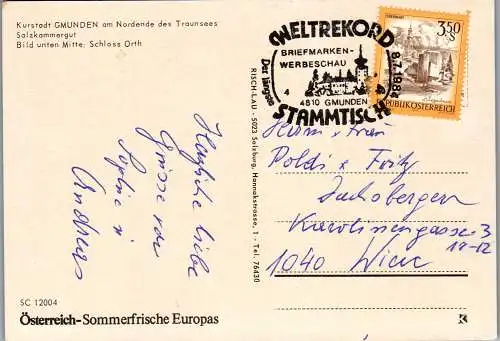 Kurstadt GMUNDEN am Nordende des Traunsees
Salzkammergut
Bild unten Mitte: Schloss Orth
Herzliche liebe
Grüsse von
Sophie u
Andreas
SC 12004
Österreich-Sommerfrische Europas
RISCH-LAU - 5023 Salzburg, Hannakstrasse, 1 - Tel. 76430
WELTREKORD
BRIEFMARKEN-
WERBESCHAU
Der längste
4810 GMUNDEN
STAMMTISCH
8.7.1984
3.50 S
REPUBLIK ÖSTERREICH
Herrn + Frau
Poldi + Fritz
Karolinengasse 3
1040 Wien